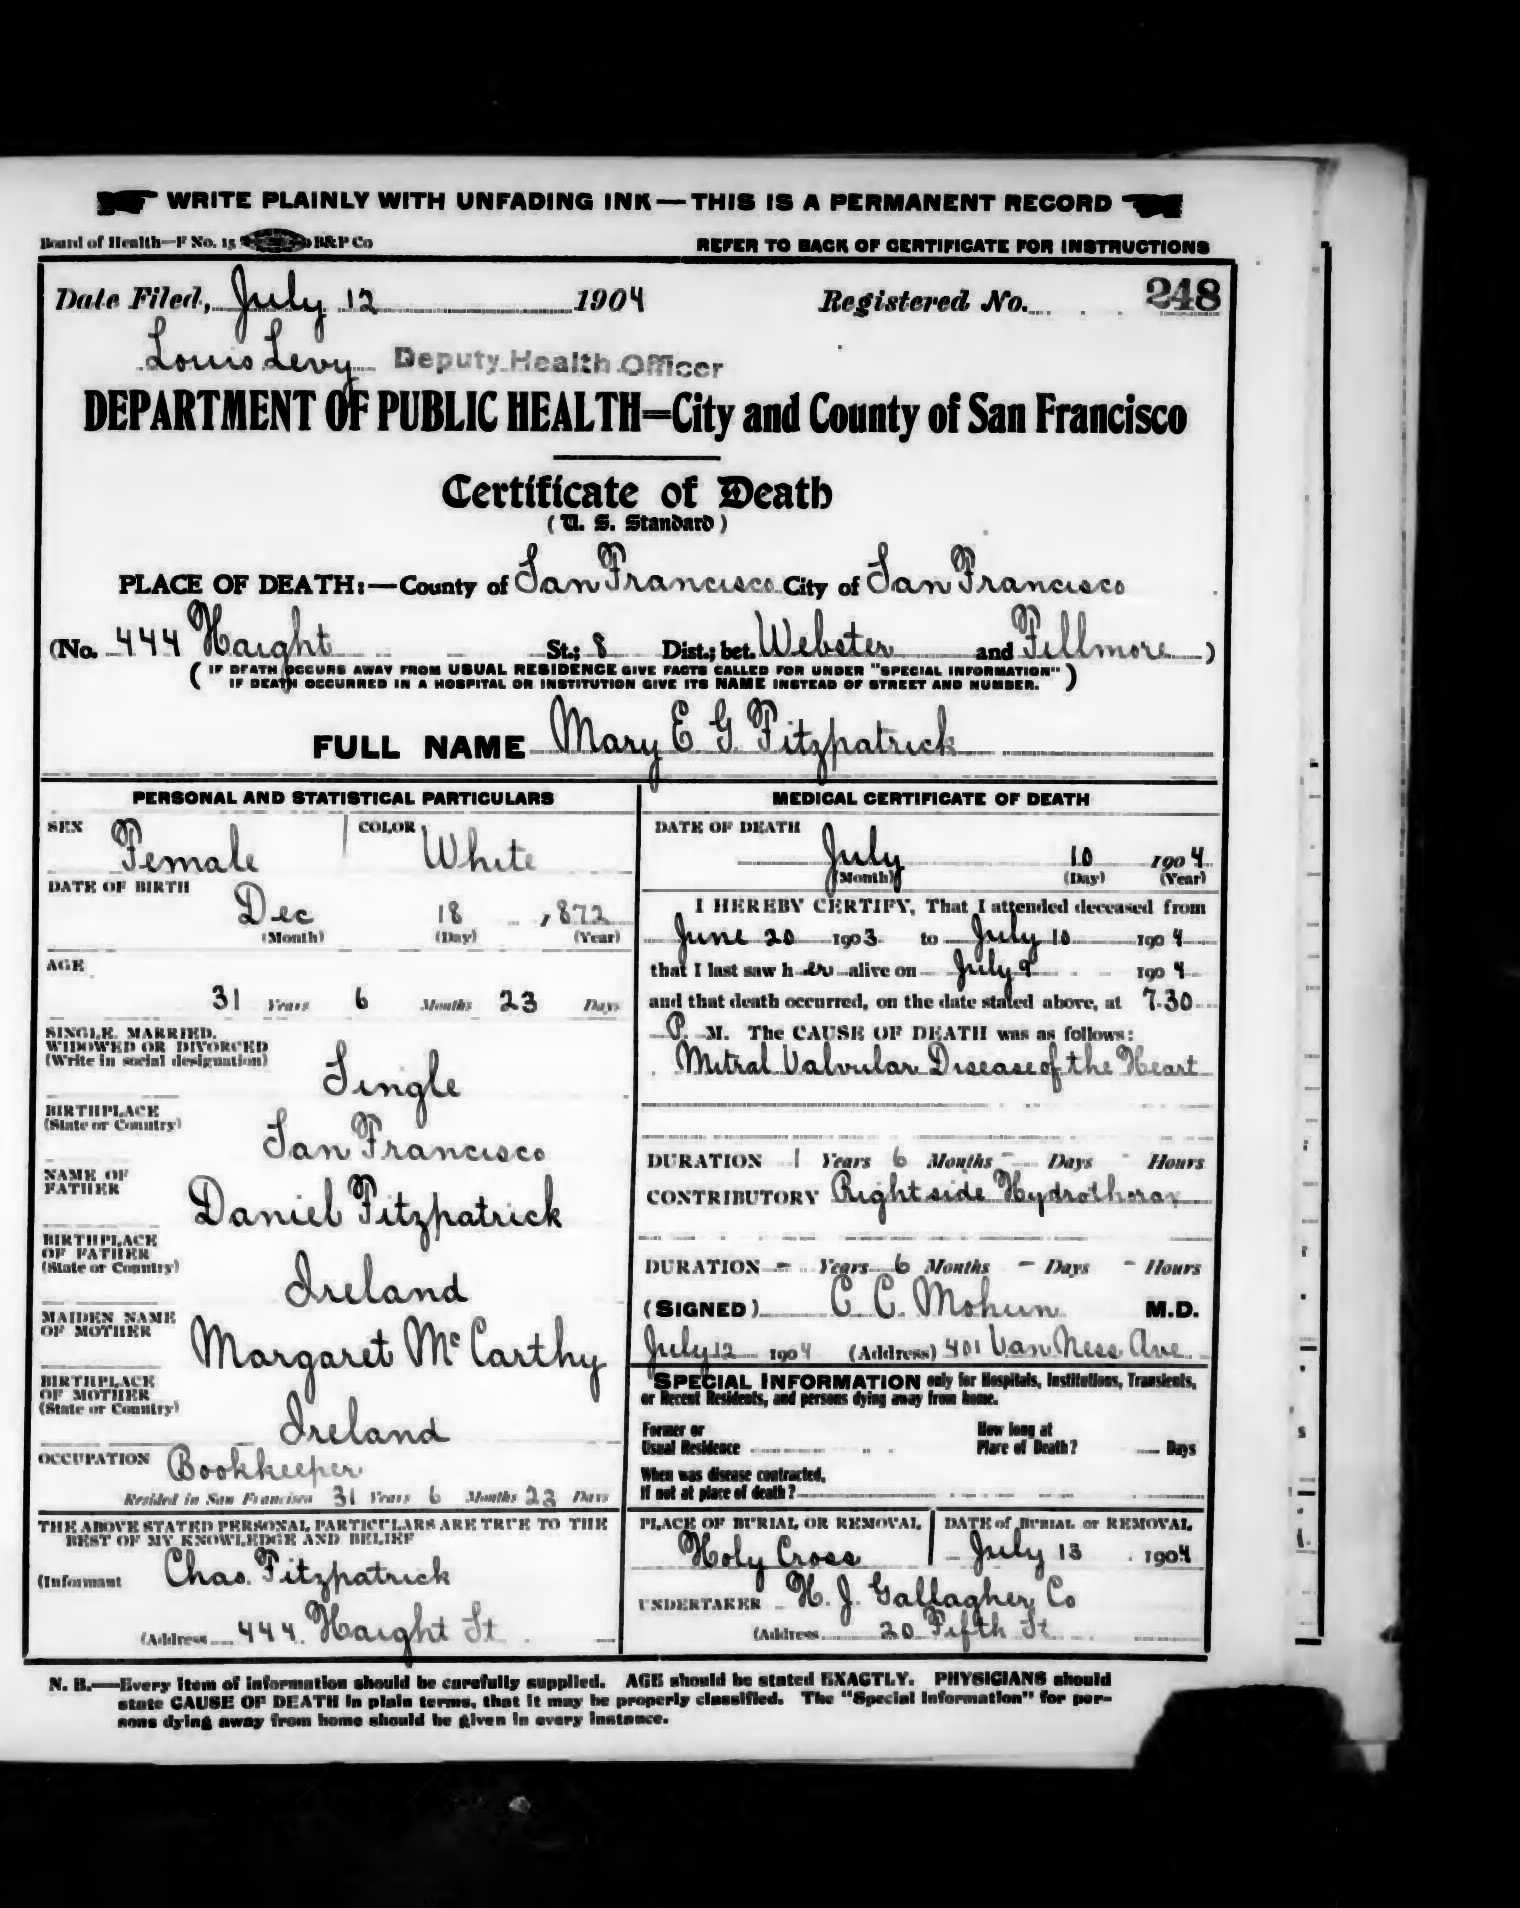 WRITE PLAINLY WITH UNFADING INK—THIS IS A PERMANENT RECORD
Board of Health—F No. 15 B&P Co REFER TO BACK OF CERTIFICATE FOR INSTRUCTIONS
Date Filed, July 12 1904 Registered No. 248
Louis Levy Deputy Health Officer
DEPARTMENT OF PUBLIC HEALTH=City and County of San Francisco
Certificate of Death
(U. S. Standard)
PLACE OF DEATH:—County of San Francisco City of San Francisco
(No. 444 Haight St.; 8 Dist.; bet. Webster and Fillmore )
( IF DEATH OCCURS AWAY FROM USUAL RESIDENCE GIVE FACTS CALLED FOR UNDER "SPECIAL INFORMATION"
IF DEATH OCCURRED IN A HOSPITAL OR INSTITUTION GIVE ITS NAME INSTEAD OF STREET AND NUMBER. )
FULL NAME Mary E G Fitzpatrick
PERSONAL AND STATISTICAL PARTICULARS
SEX Female COLOR White
DATE OF BIRTH
Dec 18 , 872
(Month) (Day) (Year)
AGE
31 Years 6 Months 23 Days
SINGLE, MARRIED,
WIDOWED OR DIVORCED
(Write in social designation)
Single
BIRTHPLACE
(State or Country)
San Francisco
NAME OF
FATHER
Daniel Fitzpatrick
BIRTHPLACE
OF FATHER
(State or Country)
Ireland
MAIDEN NAME
OF MOTHER
Margaret McCarthy
BIRTHPLACE
OF MOTHER
(State or Country)
Ireland
OCCUPATION Bookkeeper
Resided in San Francisco 31 Years 6 Months 23 Days
THE ABOVE STATED PERSONAL PARTICULARS ARE TRUE TO THE
BEST OF MY KNOWLEDGE AND BELIEF
(Informant Chas. Fitzpatrick
(Address 444 Haight St
MEDICAL CERTIFICATE OF DEATH
DATE OF DEATH
July 10 1904
(Month) (Day) (Year)
I HEREBY CERTIFY, That I attended deceased from
June 20 1903 to July 10 1904
that I last saw her alive on July 9 1904
and that death occurred, on the date stated above, at 7.30
P. M. The CAUSE OF DEATH was as follows:
Mitral Valvular Disease of the Heart
DURATION 1 Years 6 Months - Days - Hours
CONTRIBUTORY Right side Hydrothorax
DURATION - Years 6 Months - Days - Hours
(SIGNED) C. C. Mohun M.D.
July 12 1904 (Address) 401 Van Ness Ave
SPECIAL INFORMATION only for Hospitals, Institutions, Transients,
or Recent Residents, and persons dying away from home.
Former or
Usual Residence
How long at
Place of Death? Days
When was disease contracted,
If not at place of death?
PLACE OF BURIAL OR REMOVAL DATE of BURIAL or REMOVAL
Holy Cross July 13 1904
UNDERTAKER H. J. Gallagher Co
(Address 20 Fifth St
N. B.—Every item of information should be carefully supplied. AGE should be stated EXACTLY. PHYSICIANS should
state CAUSE OF DEATH in plain terms, that it may be properly classified. The "Special Information" for per-
sons dying away from home should be given in every instance.